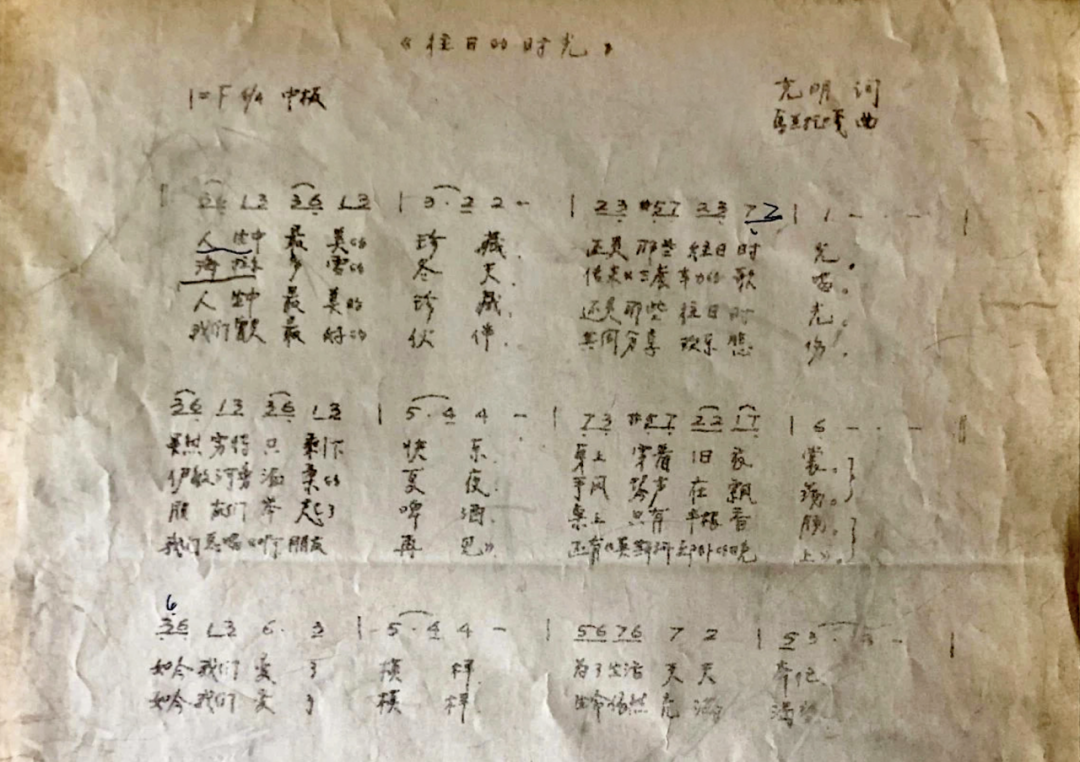 《往日的时光》
1=F 4/4 中板
克明 词
曲
36 13 36 13 | 3·2 2 - | 23 #57 23 72 | 1 - - - |
人生中最美的珍藏 还是那些往日时光。
海拉 多雪的冬天 传来三套车的歌唱。
人生中最美的珍藏 还是那些往日时光。
我们 最好的伙伴 共同分享欢乐悲伤。
36 13 36 13 | 5·4 4 - | 73 #57 22 17 | 6 - - - ‖
虽然穷得只剩下快乐 身上穿着旧衣裳。
伊敏河旁温柔的夏夜 手风琴声在飘荡。
朋友们举起了啤酒 桌上只有半根香肠。
我们 唱《啊 朋友再见》 还有《莫斯科郊外的晚上》。
6
36 13 6· 3 | 5·4 4 - | 56 76 7 2 | 5 3· 3 - |
如今我们变了模样 为了生活天天奔忙
如今我们变了模样 生命依然充满